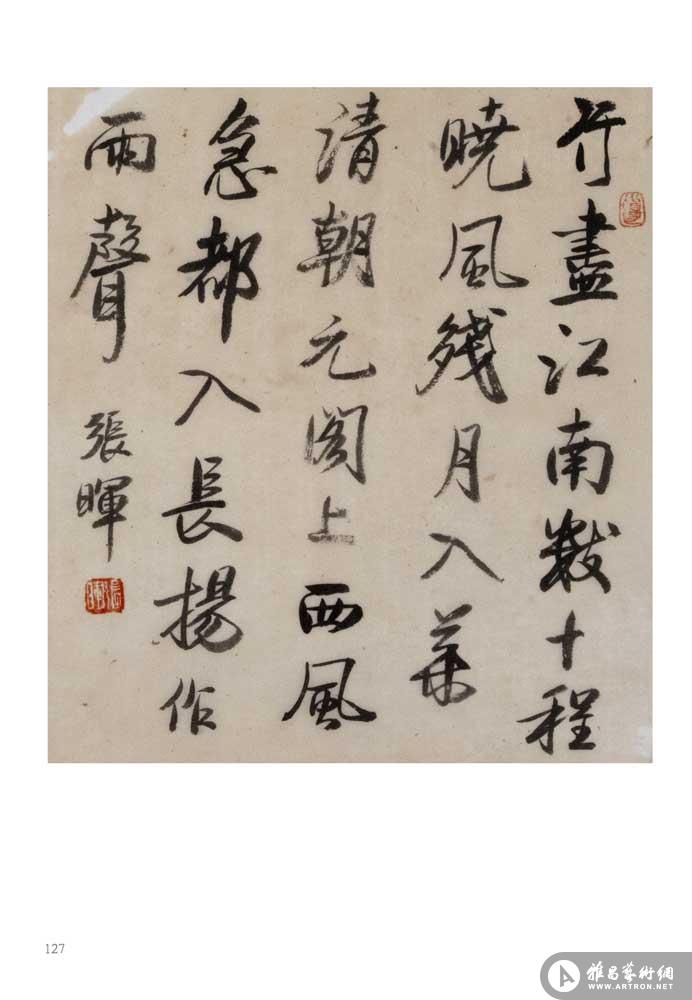 行盡江南數十程
曉風殘月入華
清朝元閣上西風
急都入長楊作
雨聲
張暉
張暉
127
雅昌藝術網
WWW.ARTRON.NET